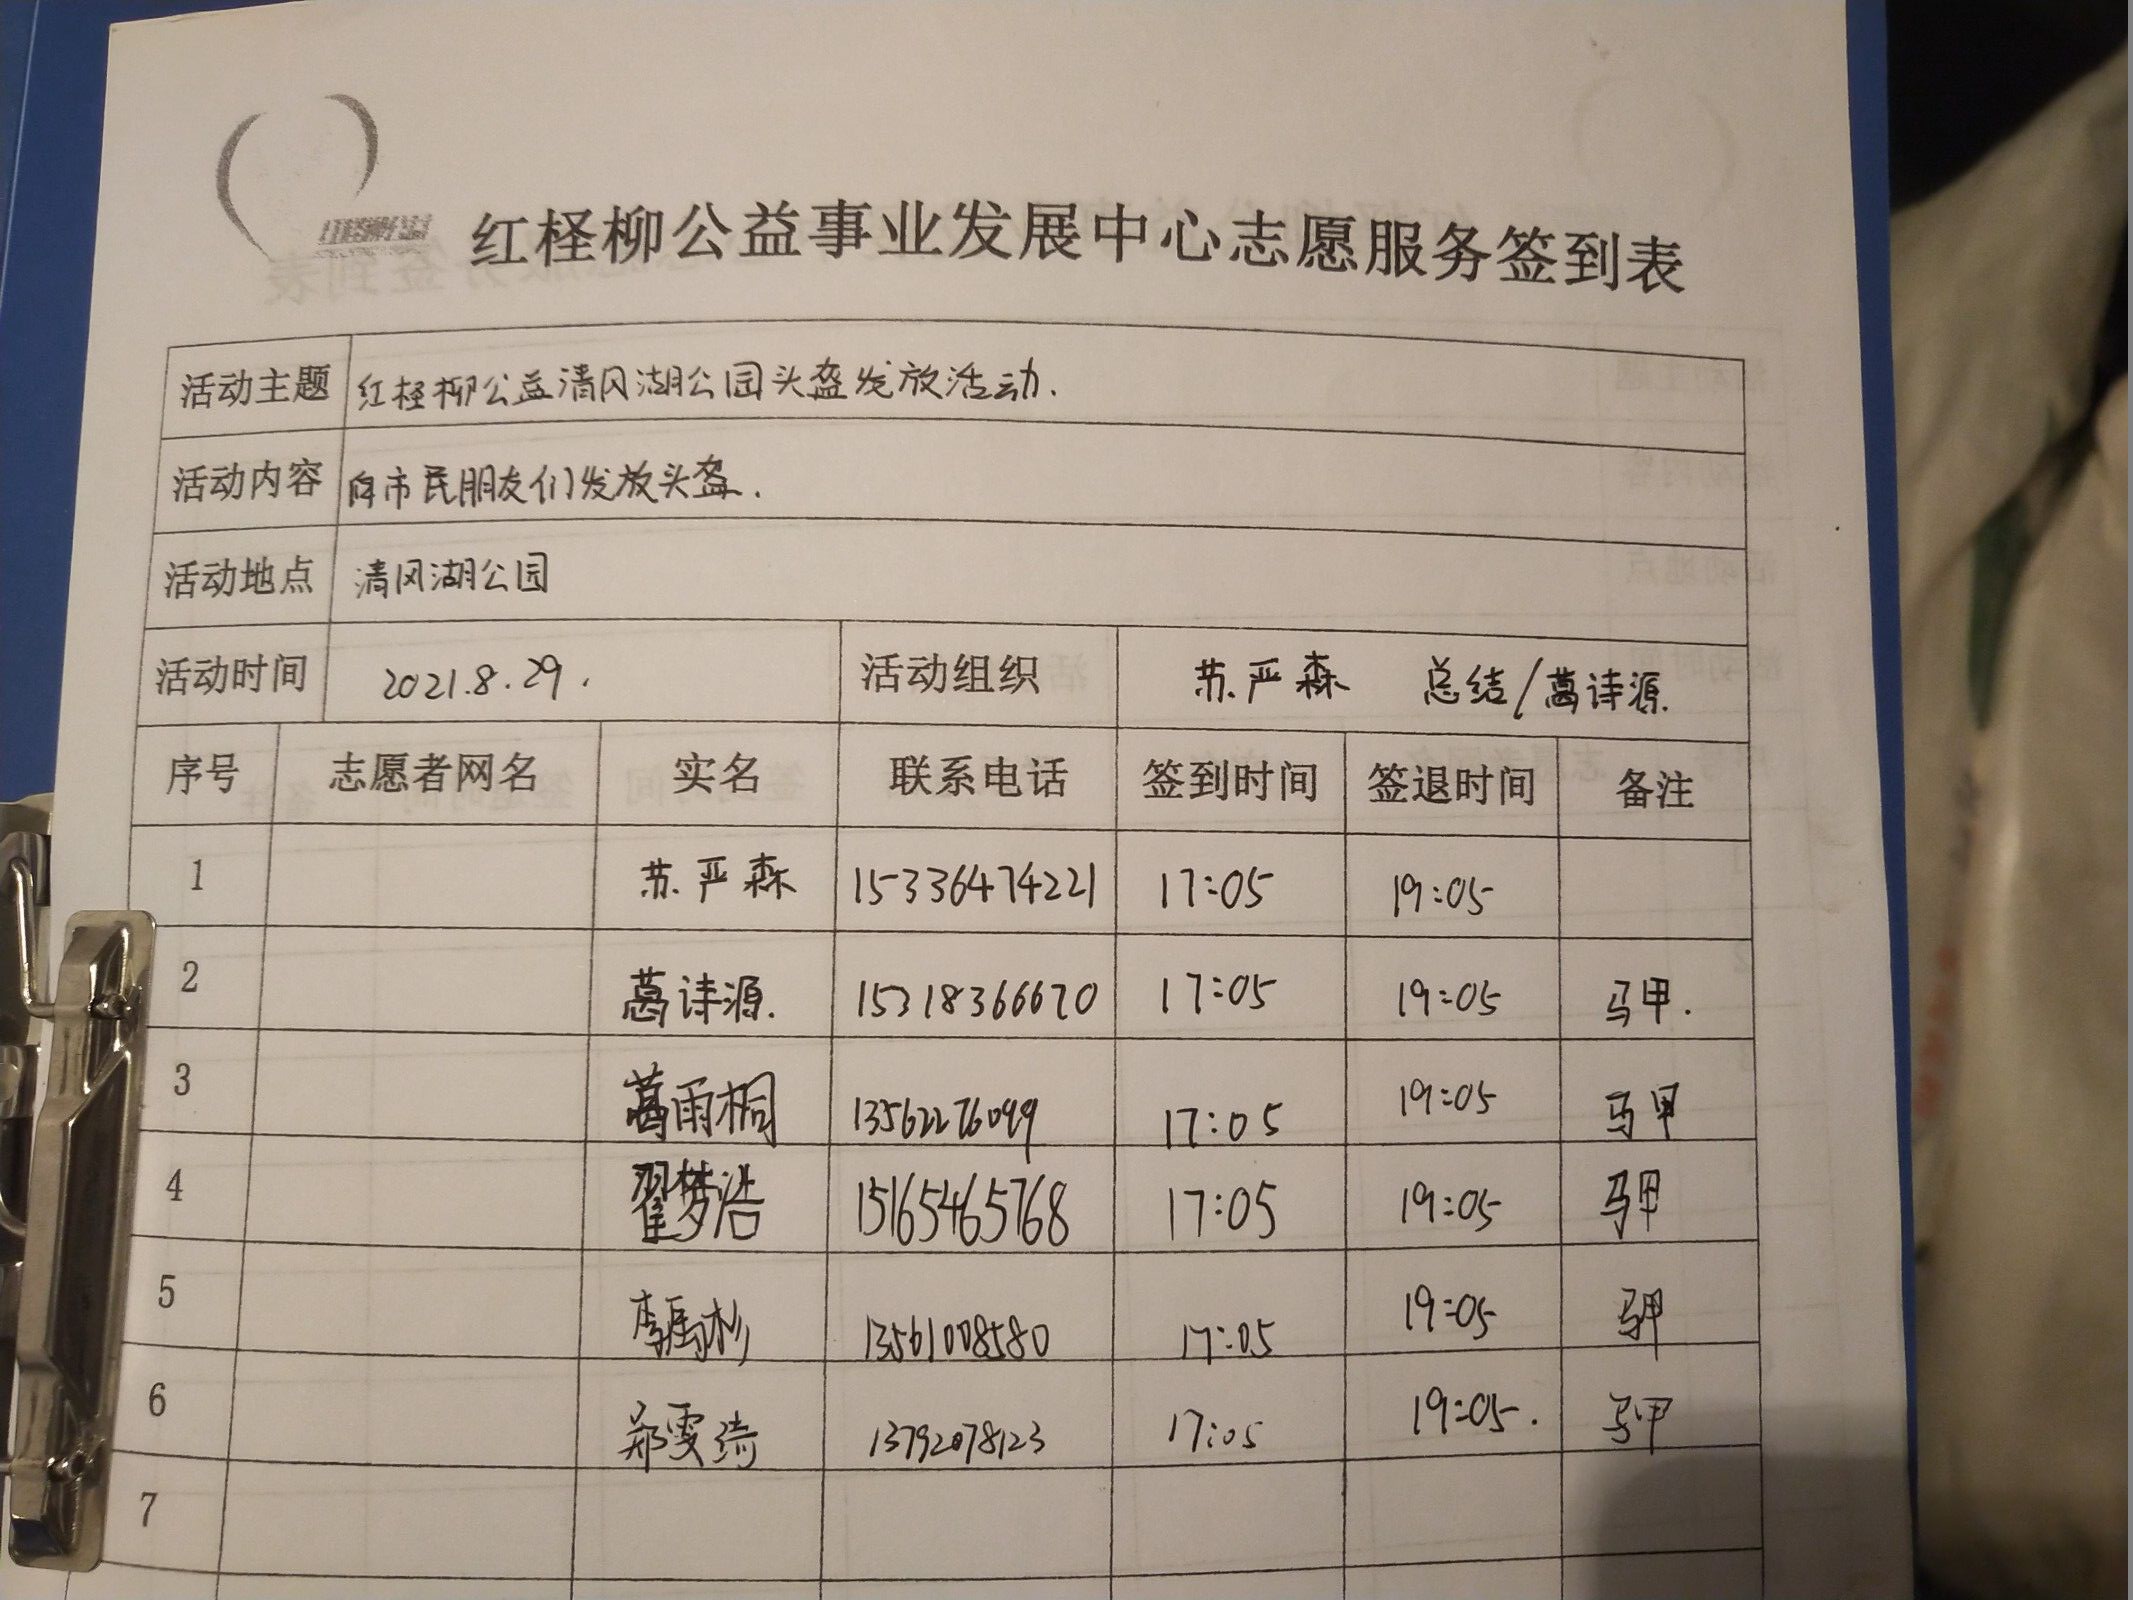 红柽柳公益事业发展中心志愿服务签到表
活动主题 红柽柳公益清风湖公园头盔发放活动.
活动内容 向市民朋友们发放头盔.
活动地点 清风湖公园
活动时间 2021.8.29. 活动组织 苏严森 总结/葛诗源.
序号 志愿者网名 实名 联系电话 签到时间 签退时间 备注
1 苏严森 15336474221 17:05 19:05
2 葛诗源. 15318366670 17:05 19:05 马甲.
3 葛雨桐 13562276099 17:05 19:05 马甲
4 翟梦浩 15165465768 17:05 19:05 马甲
5 13561008580 17:05 19:05 马甲
6 郑雯琦 13792078123 17:05 19:05. 马甲
7